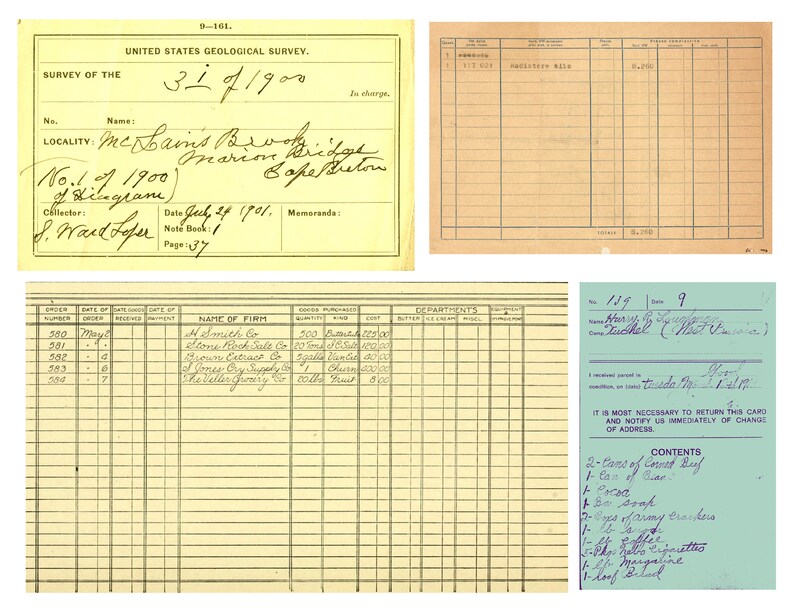 9—161.
UNITED STATES GEOLOGICAL SURVEY.
SURVEY OF THE 31 of 1900
In charge.
No. Name:
LOCALITY: McLain's Brook
Marion Bridge
Cape Breton
(No. 1 of 1900
of Diagram)
Collector: Date: July 24 1901. Memoranda:
S. Ward Loper Note Book: 1
Page: 37
1
1 117 021 8.260
TOTALS 8.260
ORDER NUMBER DATE OF ORDER DATE GOODS RECEIVED DATE OF PAYMENT NAME OF FIRM GOODS PURCHASED QUANTITY KIND COST DEPARTMENTS BUTTER ICE CREAM MISCL. EQUIPMENT & IMPROVEMENT
580 May 2 H Smith Co 500 Buttertubs 225 00
581 " " Stone Rock Salt Co 20 Tons S.C. Salt 120 00
582 " 4 Brown Extract Co 5 galls Van Ext 40 00
583 " 6 S Jones Cry Supply Co 1 Churn 400 00
584 " 7 The Veller Grocery Co 20 lbs Fruit 8 00
No. 139 Date 9
Name Harry R.
Camp Tuchel (West Prussia)
I received parcel in Good
condition, on (date)
IT IS MOST NECESSARY TO RETURN THIS CARD
AND NOTIFY US IMMEDIATELY OF CHANGE
OF ADDRESS.
CONTENTS
2- Cans of Corned Beef
1- Can of
1- Cocoa
1- Bar soap
2- Boxs of Army Crackers
1- lb sugar
1- lb Coffee
5- Pkgs Nebo Cigarettes
1- lb Margarine
1- loof Bread